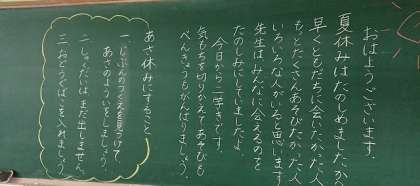 おはようございます。
夏休みはたのしめましたか
早くともだちに会いたかった人
もっとたくさんあそびたかった人
いろいろな人がいると思います
先生はみんなに会えるのを
たのしみにしていましたよ。
今日から二学きです。
気もちを切りかえてあそびも
べんきょうもがんばりましょう。
あさ休みにすること
一、じぶんのつくえを見つけて、
あさのよういをしましょう。
二、しゅくだいはまだ出しません。
三、おどうぐばこを入れましょう。